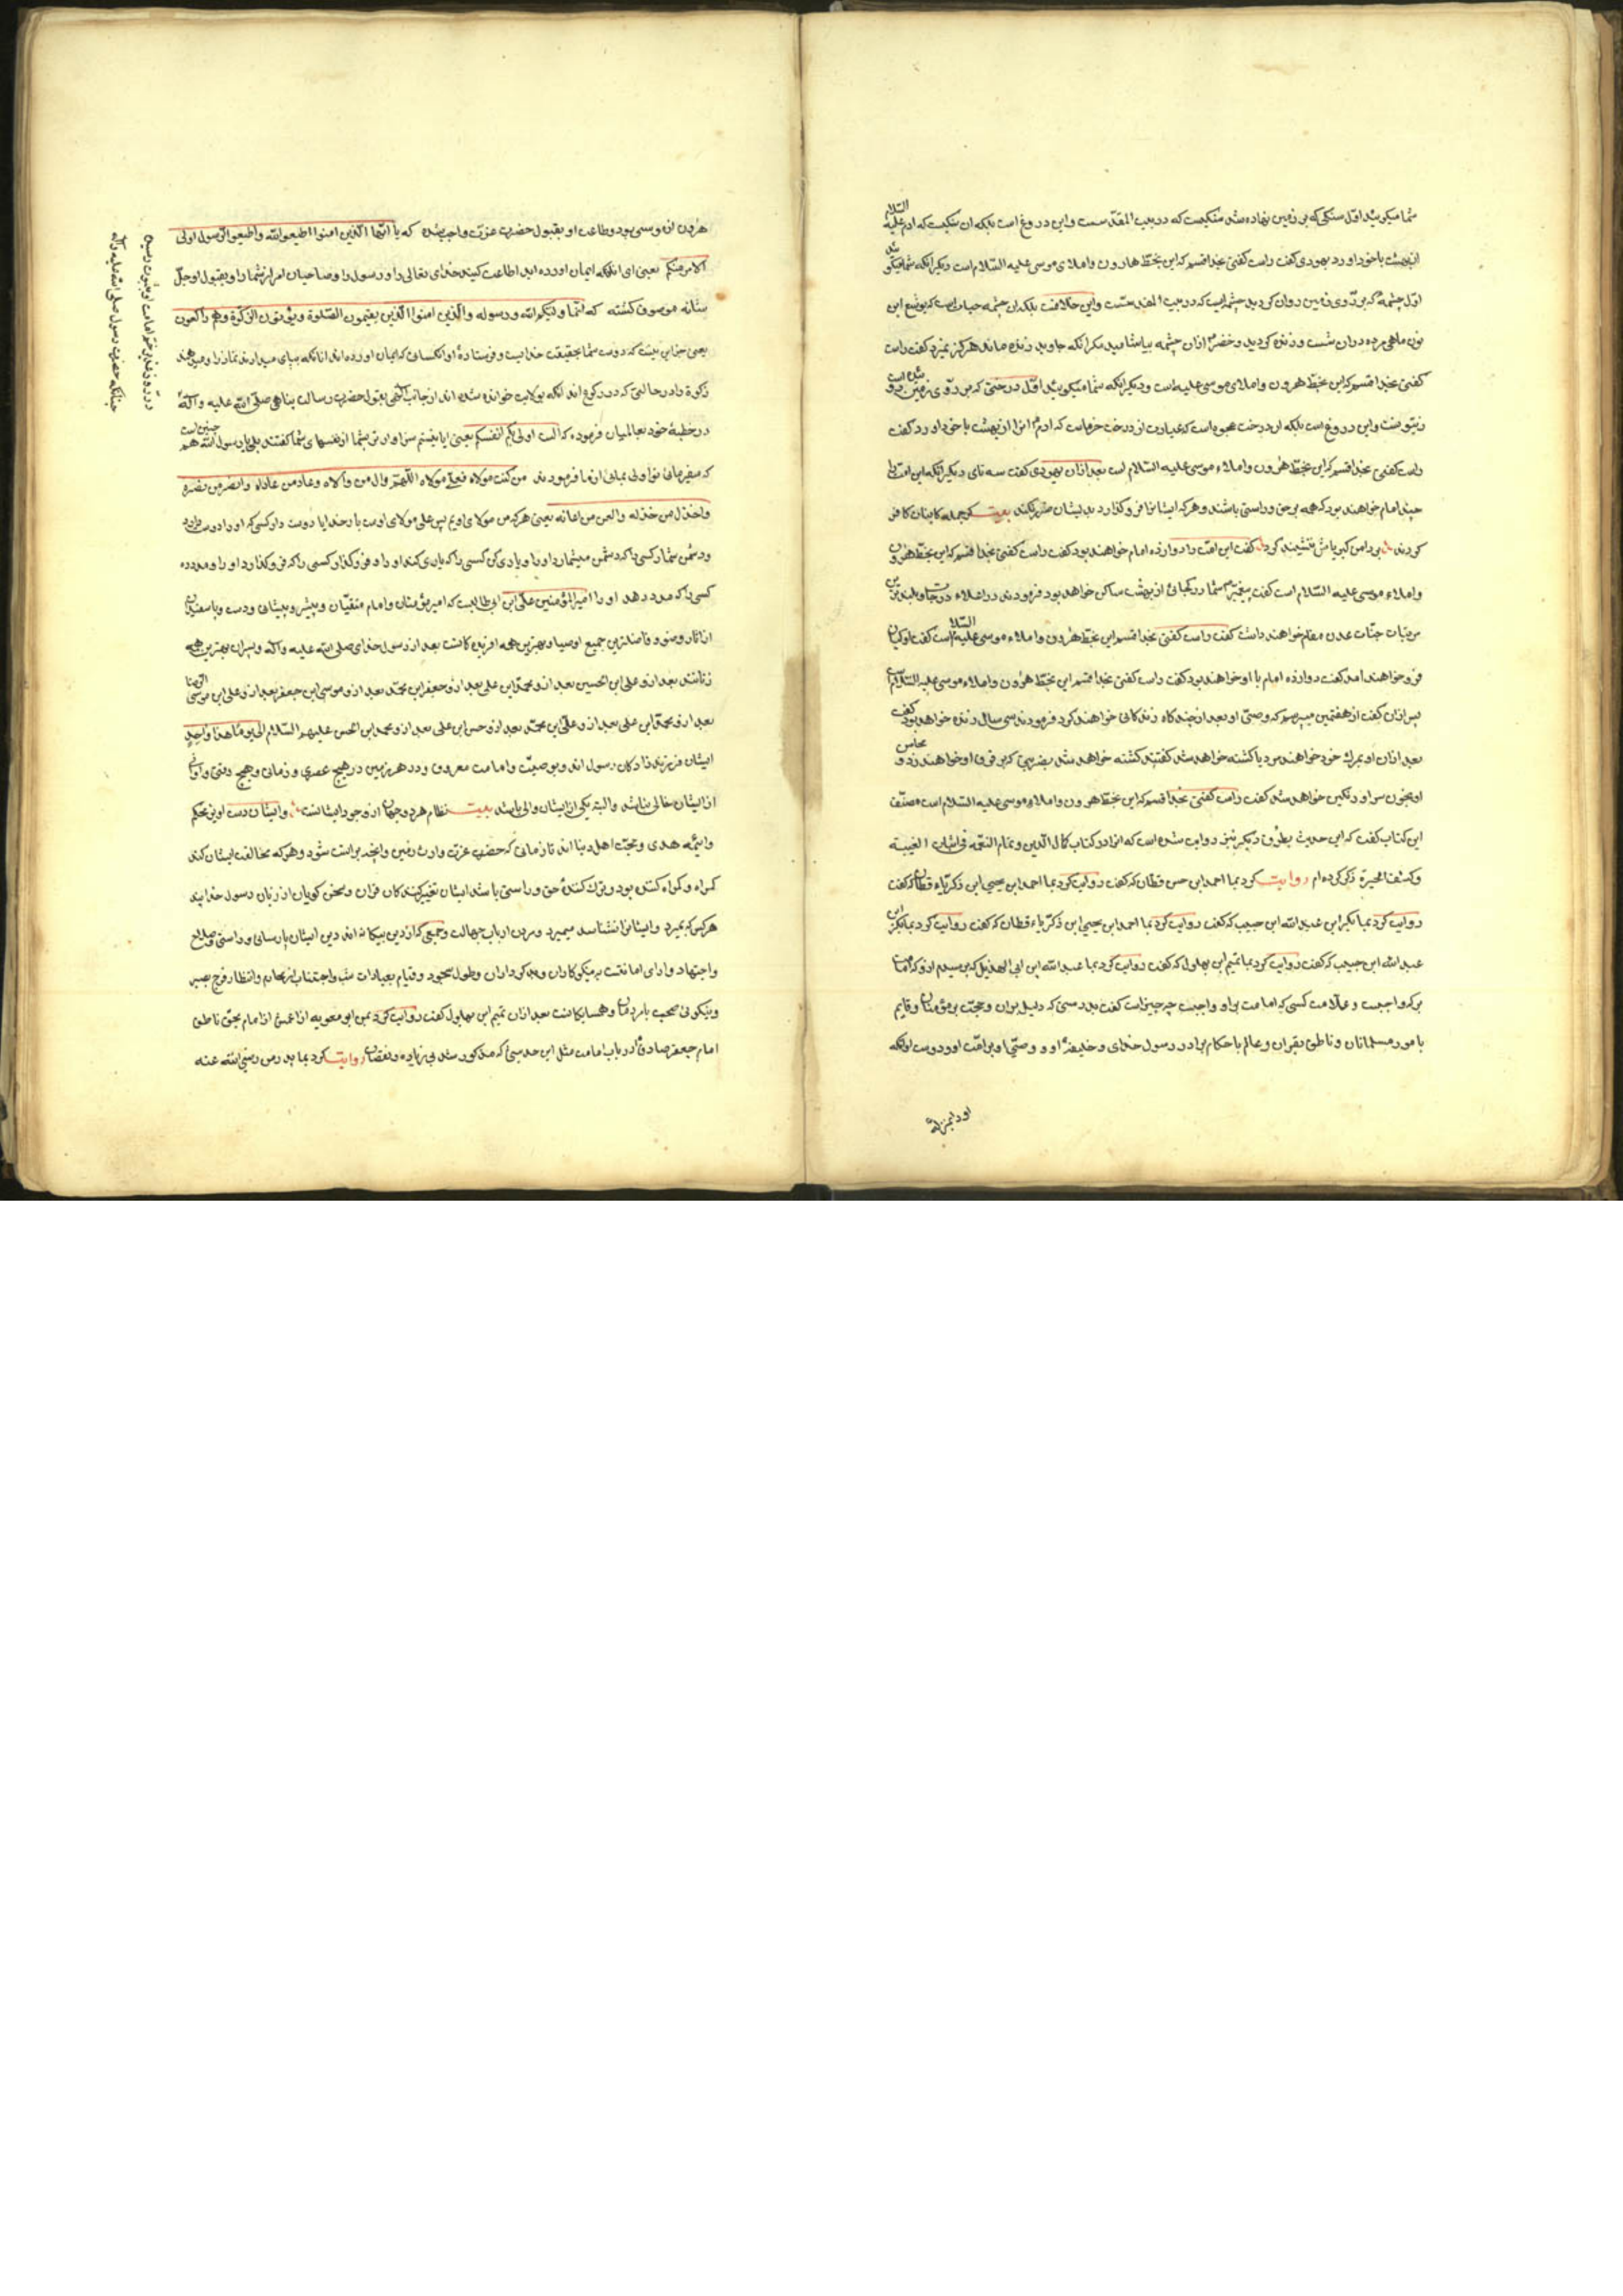 شما میکویید اوّل سنکی که بر زمین نهاده شد سنکیست که در بیت المقدّسست و این دروغ است بلکه ان سنکیست که ادم علیه السّلام
از بهشت با خود اورد یهودی کفت راست کفتی بخدا قسم که این بخطّ هارون و املای موسی علیه السّلام است دیکر انکه شما میکویید
اوّل چشمهٔ که بر روی زمین روان کردید چشمه ایست که در بیت المقدسست و این خلافست بلکه ان چشمه حیات است که یوشع ابن
نون ماهی مرده در ان شست و زنده کردید و خضر از ان چشمه بیاشامید مکر انکه جاوید زنده ماند هرکز نمیرد کفت راست
کفتی بخدا قسم که این بخطّ هرون و املای موسی علیه است و دیکر انکه شما میکویید اوّل درختی که بر روی زمین روییده است
زیتونست و این دروغ است بلکه ان درخت عجوه است که عبارت از درخت خرماست که ادم انرا از بهشت با خود اورد کفت
راست کفتی بخدا قسم که این بخطّ هرون و املاء موسی علیه السّلام است بعد از ان یهودی کفت سه تای دیکر انکه این امّت را
چند امام خواهند بود که همه بر حق و راستی باشند و هر که ایشانرا فرو کذارد بدیشان ضرر نکند بیت کر جمله کاینات کافر
کردند بر دامن کبریاش ننشیند کرد کفت این امّت را دوازده امام خواهند بود کفت راست کفتی بخدا قسم که این بخطّ هرون
و املاء موسی علیه السّلام است کفت پیغمبر شما در کجای از بهشت ساکن خواهد بود فرمودند در اعلاء درجات و بلندترین
مرتبات جنّات عدن مقام خواهند داشت کفت راست کفتی بخدا قسم این بخطّ هرون و املاء موسی علیه السّلام است کفت او کیان
فرو خواهند امد کفت دوازده امام با او خواهند بود کفت راست کفتی بخدا قسم این بخطّ هرون و املاء موسی علیه السّلام است
پس از ان کفت از هفتمین میپرسم که وصّی او بعد از چند کاه زندکانی خواهند کرد فرمودند سی سال زنده خواهد بود کفت
بعد از ان او بمرك خود خواهند مرد یا کشته خواهد شد کفتند کشته خواهد شد بضربتی که بر فرق او خواهند زد و محاسن
او بخون سر او رنکین خواهد شد کفت راست کفتی بخدا قسم که این بخطّ هرون و املاء موسی علیه السّلام است مصنّف
این کتاب کفت که این حدیث بطرق دیکر نیز روایت شده است که انرا در کتاب کمال الدّین و تمام النعمه فی اثبات الغیبة
و کشف الحیرة ذکر کرده ام روایت کرد بما احمد ابن حسن قطان که کفت روایت کرد بما احمد ابن یحیی ابن ذکریّاء قطان که کفت
روایت کرد بما بکر ابن عبد الله ابن حبیب که کفت روایت کرد بما احمد ابن یحیی ابن ذکریّاء قطان که کفت روایت کرد بما بکر ابن
عبد الله ابن حبیب که کفت روایت کرد بما تمیم ابن بهلول که کفت روایت کرد بما عبد الله ابن ابی الهذیل که پرسیدم ازو که امامت
بر که واجبست و علامت کسی که امامت بر او واجبست چه چیز است کفت بدرستی که دلیل بران و حجّت بر مؤمنان و قایم
بامور مسلمانان و ناطق بقران و عالم باحکام برادر رسول خدای و خلیفهٔ او و وصیّ او بر امّت او و دوست او انکه
او را بمنزلهٔ
هرون از موسی بود و طاعت او بقبول حضرت عزت واجب شده که یا ایّها الّذین امنوا اطیعو الله و اطیعو الرّسول اولی
الامر منکم یعنی ای انانکه ایمان اورده اید اطاعت کنید خدای تعالی را و رسول را و صاحبان امر از شما را و بقبول او جلّ
شانه موصوف کشته که انّما ولیّکم الله و رسوله و الّذین امنوا الّذین یقیمون الصّلوة و یؤتون الزّکوة و هم راکعون
یعنی جز این نیست که دوست شما بحقیقت خدایست و فرستادهٔ او انکسانی که ایمان اورده اند انانکه بپای میدارند نماز را و میدهند
زکوة را در حالتی که در رکوع اند انکه بولایت خوانده شده اند از جانب الهی بقول حضرت رسالت پناهی صلّی الله علیه و آله
در خطبهٔ خود بعالمیان فرموده که الست اولی بکم انفسکم یعنی ایا نیستم سزاوارتر بشما از نفسهای شما کفتند بلی یا رسول الله هم چنین است
که میفرمائی تو اولی بمائی از ما فرمودند من کنت مولاه فعلیّ مولاه اللّهم وال من والاه و عاد من عاداه و انصر من نصره
و اخذل من خذله و العن من اعانه یعنی هر که من مولای اویم پس علی مولای اوست بار خدایا دوست دار کسی که او را دوست دارد
و دشمن شمار کسی را که دشمن میشمارد او را و یاری کن کسی را که یاری کند او را و فرو کذار کسی را که فرو کذارد او را و مدد ده
کسی را که مدد دهد او را امیر المؤمنین علی ابن ابی طالبست که امیر مؤمنان و امام متقیّان و پیشرو پیشانی و دست و پا سفیدان
از اثار وضو و فاضلترین جمیع اوصیا و بهترین همه افریده کانست بعد از رسول خدای صلی الله علیه و آله و پسران بهترین همه
زنانند بعد ازو علی ابن الحسین بعد ازو محمّد ابن علی بعد ازو جعفر ابن محمّد بعد ازو موسی ابن جعفر بعد ازو علی ابن موسی الرّضا
بعد ازو محمّد ابن علی بعد ازو علیّ ابن محمّد بعد ازو حسن ابن علی بعد ازو محمد ابن الحسن علیهم السّلام الی یومنا هذا واحد
ایشان فرزند زادکان رسول اند و بوصیّت و امامت معروف و در هر زمین در هیچ عصری و زمانی و هیچ وقتی و اوانی
از ایشان خالی نباشد و البتّه یکی از ایشان والی باشد بیت نظام هر دو جهان از وجود ایشانست و ایشان دست اویز محکم
و ائیمّه هدی و حجّت اهل دنیا اند تا زمانی که حضرت عزت وارث زمین و انچه بر اوست شود و هر که مخالفت ایشان کند
کمراه و کمراه کننده بود و ترك کنندهٔ حق و راستی باشد ایشان تفییر کنندکان قران و سخن کویان از زبان رسول خدایند
هر کس که بمیرد و ایشانرا نشناسد میمیرد مردن ارباب جهالت و جمعی که از دین بیکانه اند دین ایشان پارسائی و راستی و صلاح
و اجتهاد و ادای امانتست بنیکوکاران و بد کرداران و طول سجود و قیام بعبادات شب و اجتناب از محارم و انتظار فرج بصبر
و نیکوئی صحبت با مردمان و همسایکانست بعد از ان تمیم ابن بهلول کفت روایت کرد بمن ابو معویه از اعمش از امام بحق ناطق
امام جعفر صادق در باب امامت مثل این حدیثی که مذکور شد بی زیاده و نقصان روایت کرد بما پدر من رضی الله عنه
چنانکه حضرت رسول صلی الله علیه و آله